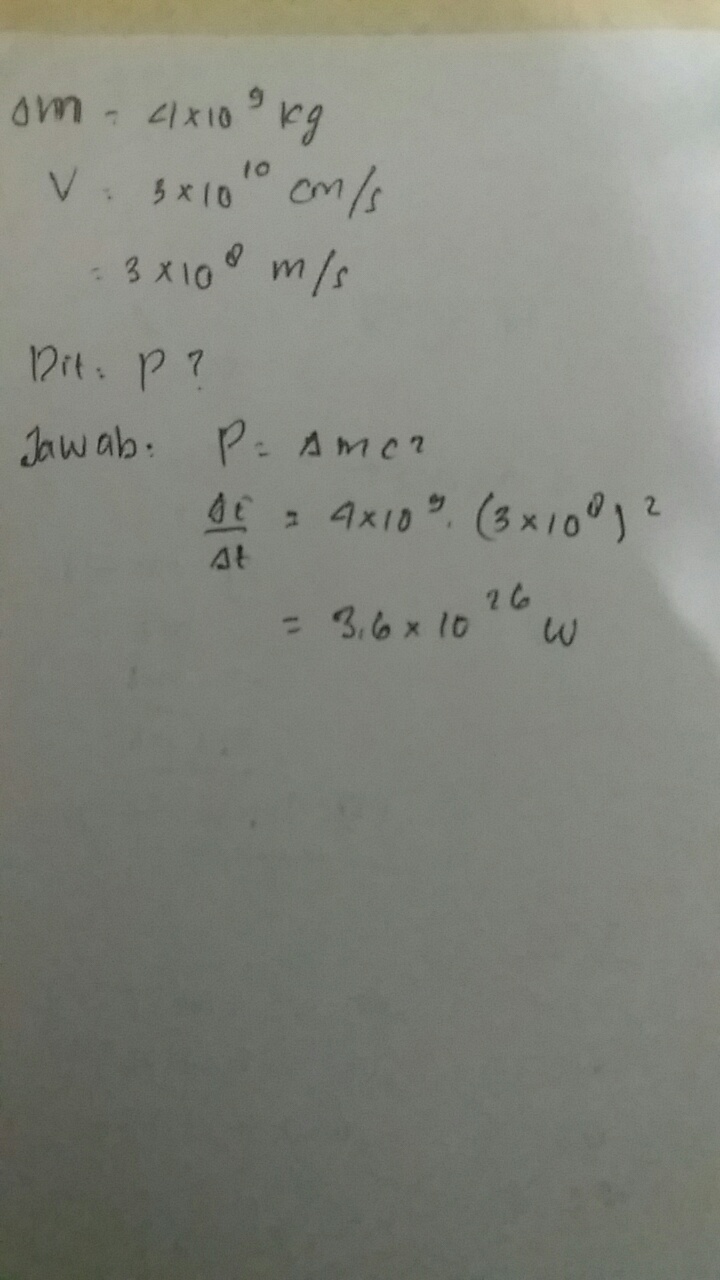 Δm = 4×10⁹ kg
V = 3×10¹⁰ cm/s
= 3×10⁸ m/s
Dit: P?
Jawab: P = Δmc²
ΔE/Δt = 4×10⁹. (3×10⁸)²
= 3,6×10²⁶ W